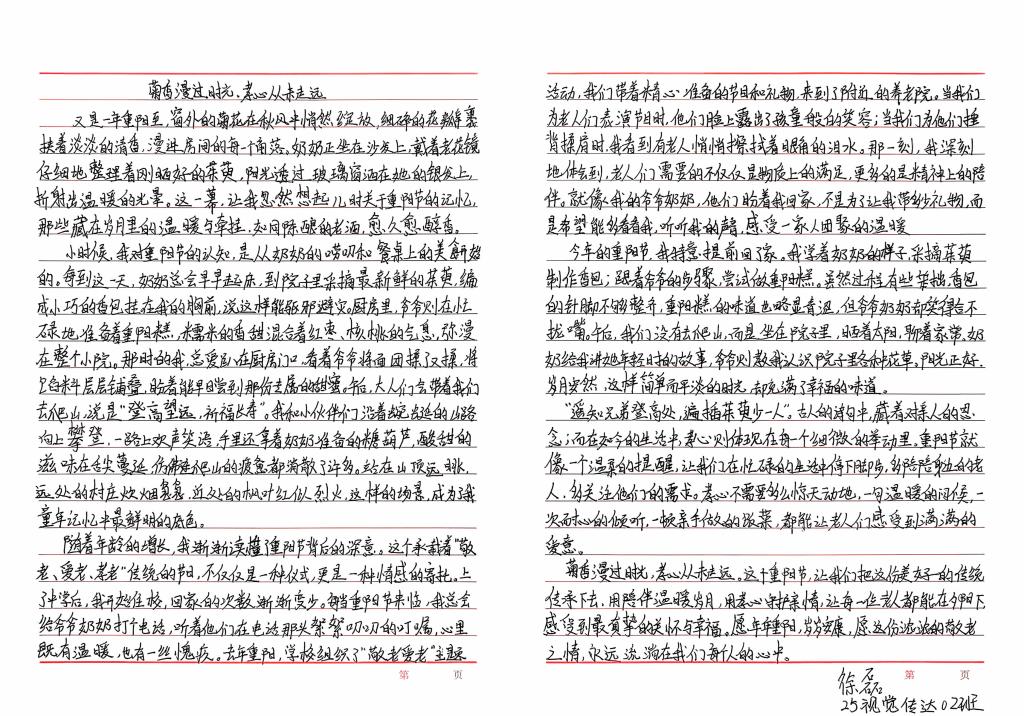 菊香漫过时光，孝心从未走远
又是一年重阳至，窗外的菊花在秋风中悄然绽放，细碎的花瓣裹
挟着淡淡的清香，漫进房间的每个角落。奶奶正坐在沙发上，戴着老花镜
仔细地整理着刚晒好的茱萸，阳光透过玻璃窗洒在她的银发上，
折射出温暖的光晕。这一幕，让我忽然想起儿时关于重阳节的记忆，
那些藏在岁月里的温暖与牵挂，如同陈酿的老酒，愈久愈醇香。
小时候，我对重阳节的认知，是从奶奶的唠叨和餐桌上的美食开始
的。每到这一天，奶奶总会早早起床，到院子里采摘最新鲜的茱萸，编
成小巧的香包挂在我的胸前，说这样能驱邪避灾。厨房里，爷爷则在忙
碌地准备着重阳糕，糯米的香甜混合着红枣、核桃的气息，弥漫
在整个小院。那时的我，总爱趴在厨房门口，看着爷爷将面团揉了又揉，将
馅料层层铺叠，盼着能早日尝到那份专属的甜蜜。午后，大人们会带着我们
去爬山，说是“登高望远，祈福长寿”。我和小伙伴们沿着蜿蜒的山路
向上攀登，一路上欢声笑语，手里还拿着奶奶准备的糖葫芦，酸甜的
滋味在舌尖蔓延，仿佛连爬山的疲惫都消散了许多。站在山顶远眺，
远处的村庄炊烟袅袅，近处的枫叶红似烈火，这样的场景，成为了我
童年记忆中最鲜明的底色。
随着年龄的增长，我渐渐读懂了重阳节背后的深意。这个承载着“敬
老、爱老、孝老”传统的节日，不仅仅是一种仪式，更是一种情感的寄托。上
了中学后，我开始住校，回家的次数渐渐变少。每当重阳节来临，我总会
给爷爷奶奶打个电话，听着他们在电话那头絮絮叨叨的叮嘱，心里
既有温暖，也有一丝愧疚。去年重阳，学校组织了“敬老爱老”主题
第 页
活动，我们带着精心准备的节目和礼物，来到了附近的养老院。当我们
为老人们表演节目时，他们脸上露出了孩童般的笑容；当我们为他们捶
背揉肩时，我看到有老人悄悄擦拭着眼角的泪水。那一刻，我深刻
地体会到，老人们需要的不仅仅是物质上的满足，更多的是精神上的陪
伴。就像我的爷爷奶奶，他们盼着我回家，不是为了让我带多少礼物，而
是希望能多看看我，听听我的声，感受一家人团聚的温暖
今年的重阳节，我特意提前回了家。我学着奶奶的样子，采摘茱萸
制作香包；跟着爷爷的步骤，尝试做重阳糕。虽然过程有些笨拙，香包
的针脚不够整齐，重阳糕的味道也略显青涩，但爷爷奶奶却笑得合不
拢嘴。午后，我们没有去爬山，而是坐在院子里，晒着太阳，聊着家常。奶
奶给我讲她年轻时的故事，爷爷则教我认识院子里各种花草，阳光正好，
岁月安然，这样简单而平淡的时光，却充满了幸福的味道。
“遥知兄弟登高处，遍插茱萸少一人”。古人的诗句中，藏着对亲人的思
念；而在如今的生活中，孝心则体现在每一个细微的举动里。重阳节就
像一个温柔的提醒，让我们在忙碌的生活中停下脚步，多陪陪身边的老
人，多关注他们的需求。孝心不需要多么惊天动地，一句温暖的问候，一
次耐心的倾听，一顿亲手做的饭菜，都能让老人们感受到满满的
爱意。
菊香漫过时光，孝心从未走远。这个重阳节，让我们把这份美好的传统
传承下去，用陪伴温暖岁月，用孝心守护亲情，让每一位老人都能在夕阳下
感受到最真挚的关怀与幸福。愿年年重阳，岁岁安康，愿这份浓浓的敬老
之情，永远流淌在我们每个人的心中。
第 页
徐磊
25视觉传达02班